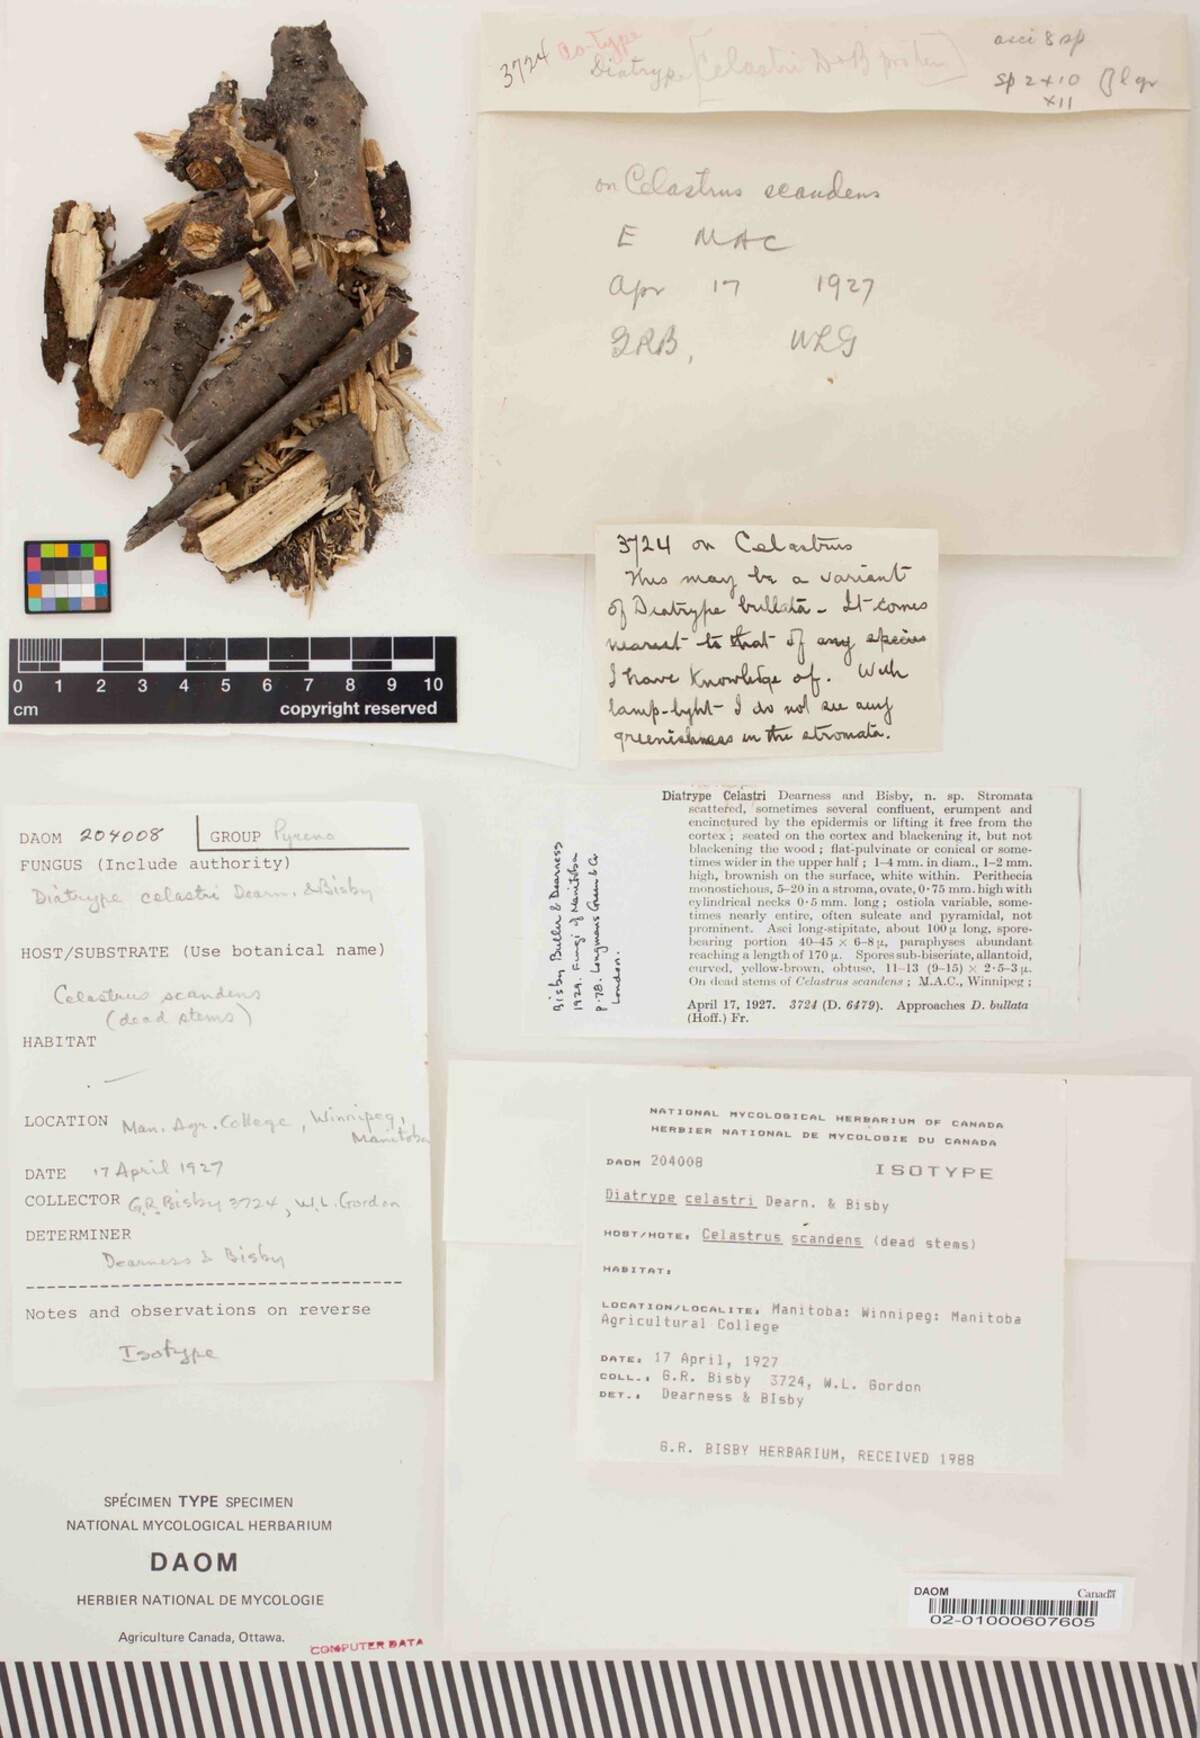 3724 Co-type
Diatrype [Celastri D & B prot em]
asci 8 sp
sp 2 x 10
x 11
on Celastrus scandens
E MAC
Apr 17 1927
GRB, WLG
3724 on Celastrus
This may be a variant
of Diatrype bullata - It comes
nearest to that of any species
I have knowledge of. With
lamp-light I do not see any
greenishness in the stromata.
0 1 2 3 4 5 6 7 8 9 10
cm copyright reserved
Diatrype Celastri Dearness and Bisby, n. sp. Stromata
scattered, sometimes several confluent, erumpent and
encinctured by the epidermis or lifting it free from the
cortex; seated on the cortex and blackening it, but not
blackening the wood; flat-pulvinate or conical or some-
times wider in the upper half; 1-4 mm. in diam., 1-2 mm.
high, brownish on the surface, white within. Perithecia
monostichous, 5-20 in a stroma, ovate, 0·75 mm. high with
cylindrical necks 0·5 mm. long; ostiola variable, some-
times nearly entire, often sulcate and pyramidal, not
prominent. Asci long-stipitate, about 100 μ long, spore-
bearing portion 40-45 × 6-8 μ, paraphyses abundant
reaching a length of 170 μ. Spores sub-biseriate, allantoid,
curved, yellow-brown, obtuse, 11-13 (9-15) × 2·5-3 μ.
On dead stems of Celastrus scandens; M.A.C., Winnipeg;
April 17, 1927. 3724 (D. 6479). Approaches D. bullata
(Hoff.) Fr.
Bisby Buller & Dearness
1929. Fungi of Manitoba
p. 78. Longmans Green & Co
London.
DAOM 204008 GROUP Pyreno
FUNGUS (Include authority)
Diatrype celastri Dearn. & Bisby
HOST/SUBSTRATE (Use botanical name)
Celastrus scandens
(dead stems)
HABITAT
LOCATION Man. Agr. College, Winnipeg,
Manitoba
DATE 17 April 1927
COLLECTOR G.R. Bisby 3724, W.L. Gordon
DETERMINER
Dearness & Bisby
Notes and observations on reverse
Isotype
NATIONAL MYCOLOGICAL HERBARIUM OF CANADA
HERBIER NATIONAL DE MYCOLOGIE DU CANADA
DAOM 204008 ISOTYPE
Diatrype celastri Dearn. & Bisby
HOST/HOTE: Celastrus scandens (dead stems)
HABITAT:
LOCATION/LOCALITE: Manitoba: Winnipeg: Manitoba
Agricultural College
DATE: 17 April, 1927
COLL.: G.R. Bisby 3724, W.L. Gordon
DET.: Dearness & BIsby
G.R. BISBY HERBARIUM, RECEIVED 1988
SPÉCIMEN TYPE SPECIMEN
NATIONAL MYCOLOGICAL HERBARIUM
DAOM
HERBIER NATIONAL DE MYCOLOGIE
Agriculture Canada, Ottawa.
COMPUTER DATA
DAOM Canada
02-01000607605